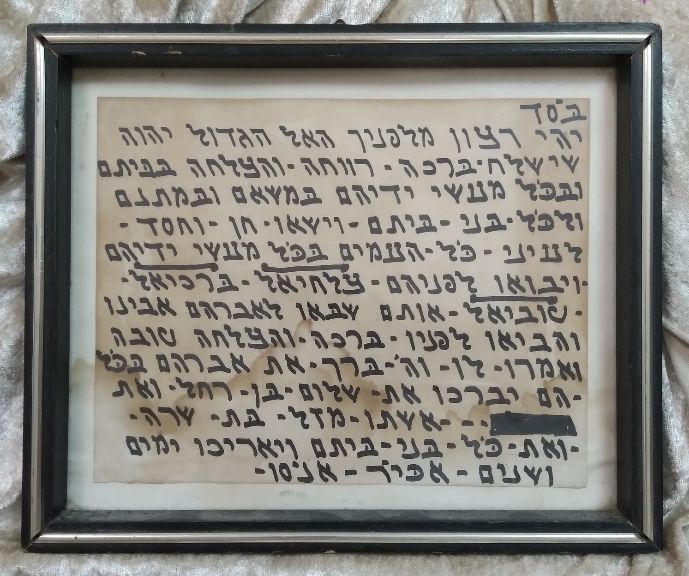 ב״סד
יהי רצון מלפניך האל הגדול יהוה
שישלח-ברכה-רווחה-והצלחה בביתם
ובכל מעשי ידיהם במשאם ובמתנם
ולכל-בני-ביתם-וישאו-חן-וחסד-
לעיני-כל-העמים בכל מעשי ידיהם
-ויבואו לפניהם-צלחיאל-ברכיאל-
-טוביאל-אותם שבאו לאברהם אבינו
והביאו לפניו-ברכה-והצלחה טובה
ואמרו-לו-וה׳-ברך-את אברהם בכל
-הם יברכו את-שלום-בן-רחל-ואת
--אשתו-מזל-בת-שרה-
-ואת-כל-בני-ביתם ויאריכו ימים
ושנים-אכי״ר-אנסו-